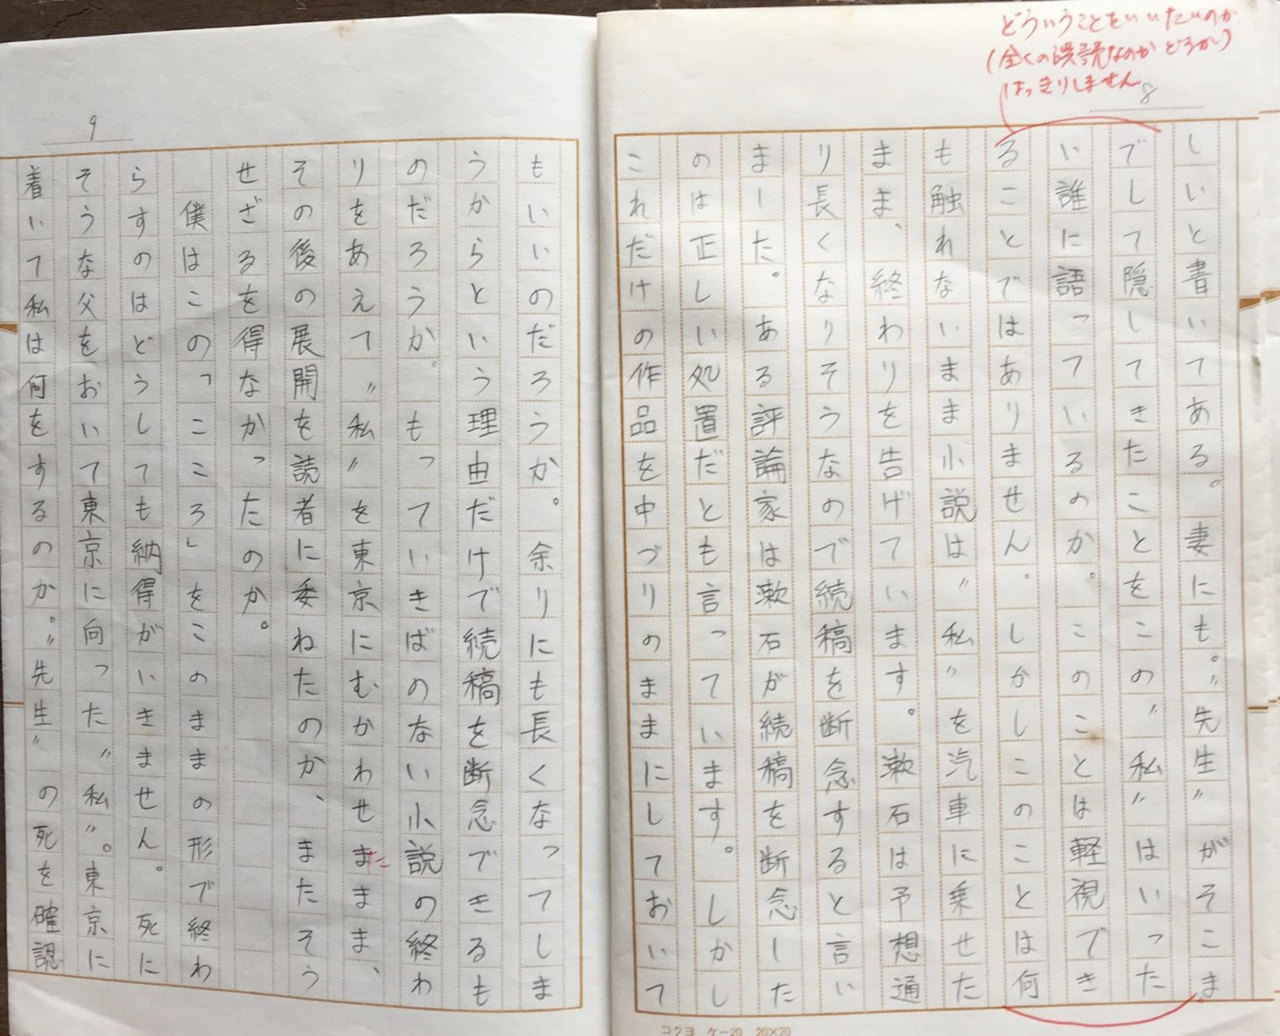 どういうことをいいたいのか
(全くの誤読なのかどうか)
はっきりしません
8
しいと書いてある。妻にも。〝先生〟がそこま
でして隠してきたことをこの〝私〟はいった
い誰に語っているのか。このことは軽視でき
ることではありません。しかしこのことは何
も触れないまま小説は〝私〟を汽車に乗せた
まま、終わりを告げています。漱石は予想通
り長くなりそうなので続稿を断念すると言い
ました。ある評論家は漱石が続稿を断念した
のは正しい処置だとも言っています。しかし
これだけの作品を中づりのままにしておいて
コクヨ ケー20 20×20
9
もいいのだろうか。余りにも長くなってしま
うからという理由だけで続稿を断念できるも
のだろうか。もっていきばのない小説の終わ
りをあえて〝私〟を東京にむかわせままま、
た
その後の展開を読者に委ねたのか、またそう
せざるを得なかったのか。
僕はこの「こころ」をこのままの形で終わ
らすのはどうしても納得がいきません。死に
そうな父をおいて東京に向った〝私〟。東京に
着いて私は何をするのか。〝先生〟の死を確認